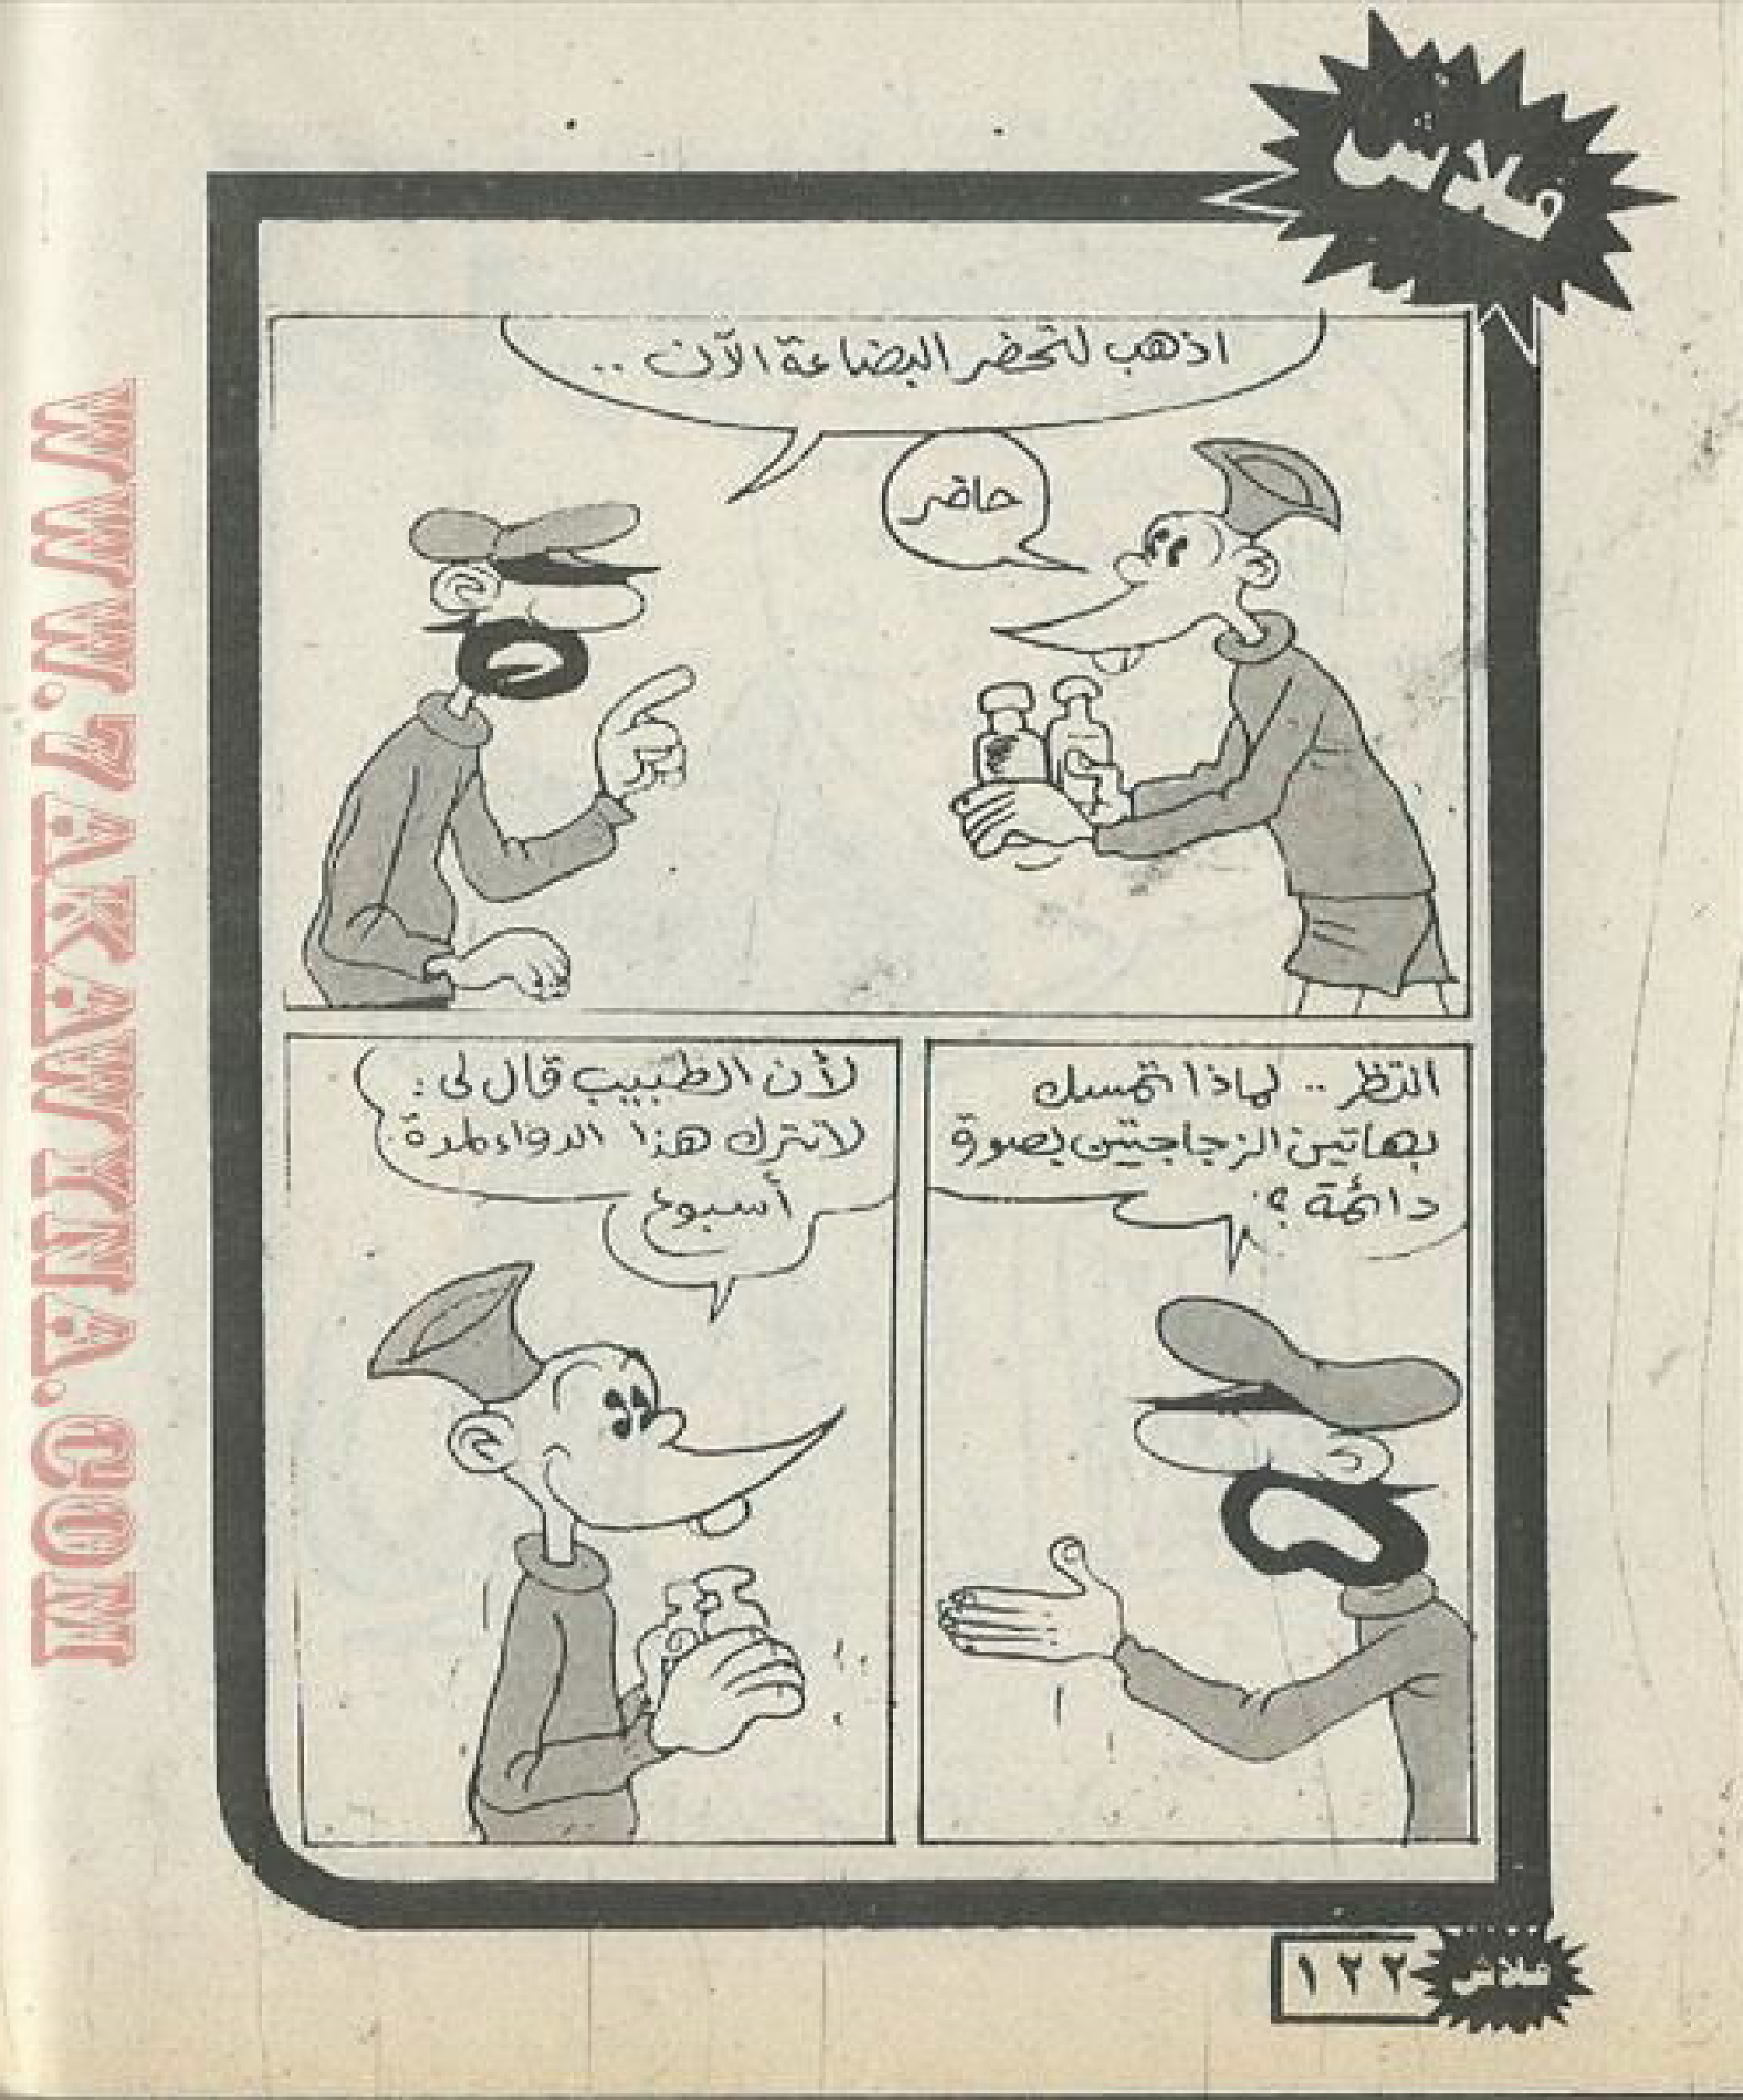 فلاش
اذهب لتحضر البضاعة الآن ..
حاضر
انتظر .. لماذا تمسك
بهاتين الزجاجتين بصورة
دائمة ؟
لأن الطبيب قال لى :
لا تترك هذا الدواء لمدة
أسبوع
١٢٢
فلاش
WWW.7AKAWITNA.COM